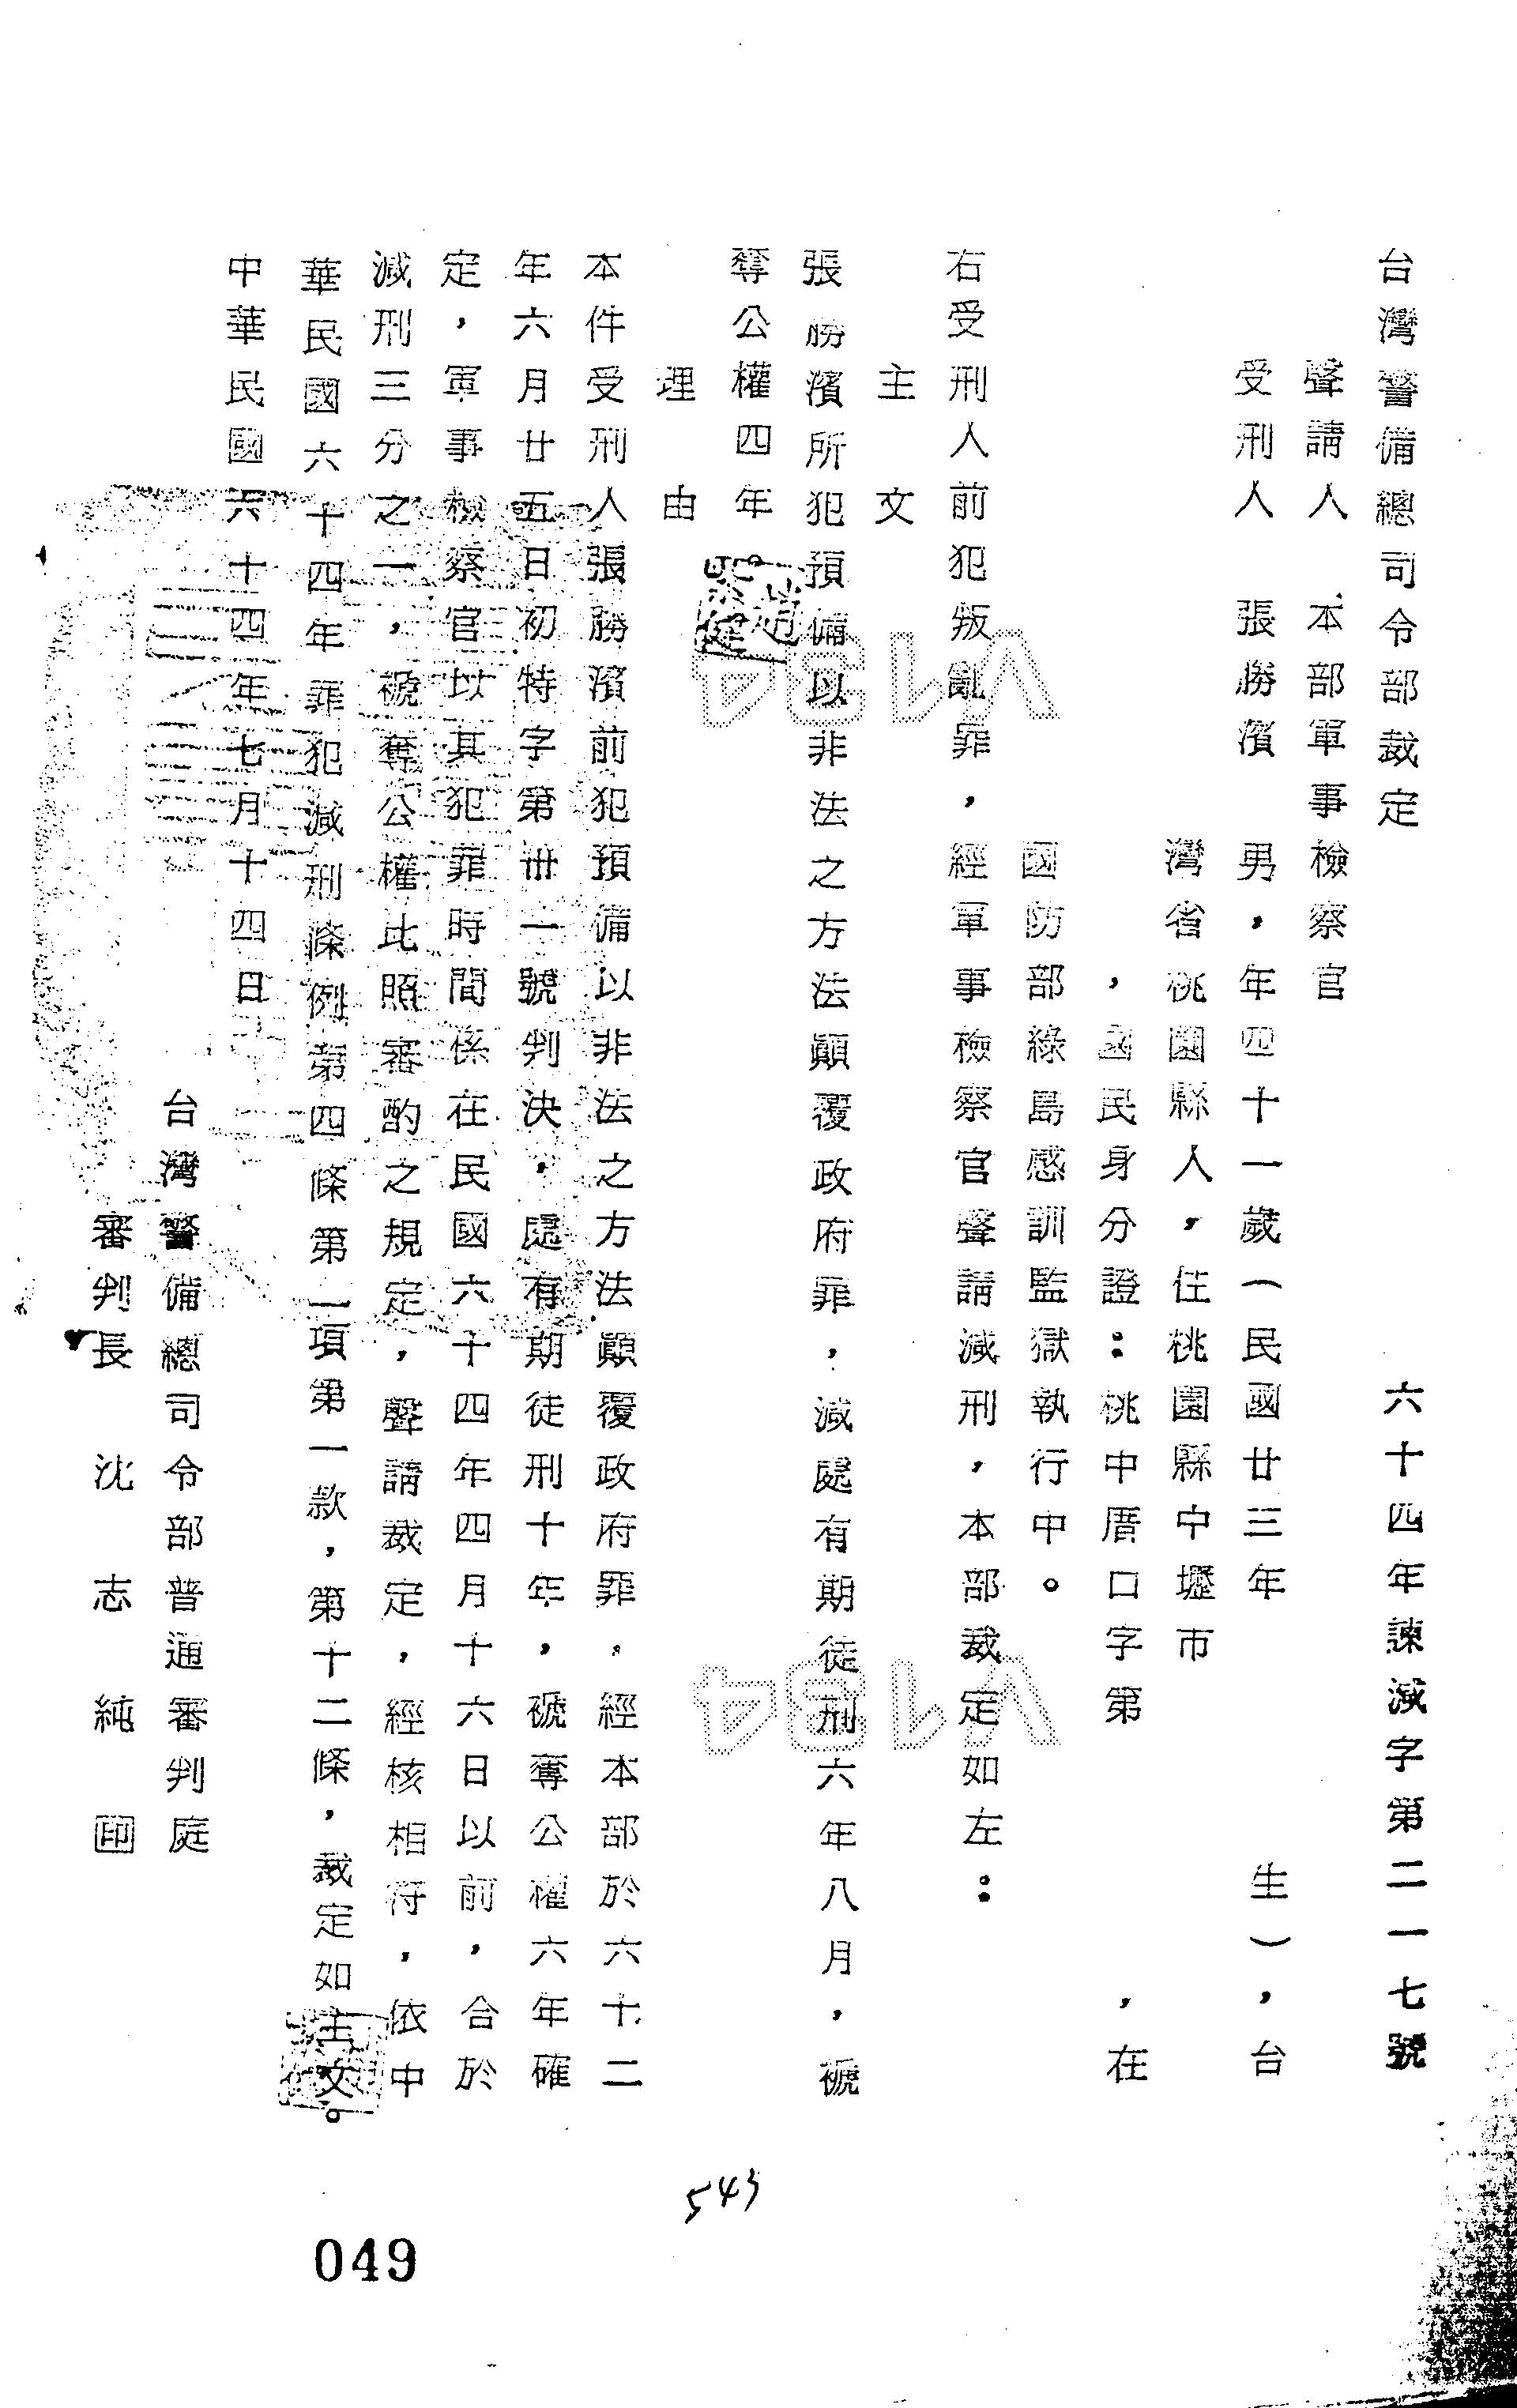 台灣警備總司令部裁定
六十四年諫減字第二一七號
聲請人 本部軍事檢察官
受刑人 張勝濱 男,年四十一歲(民國廿三年 生),台
灣省桃園縣人,住桃園縣中壢市
,國民身分證:桃中厝口字第 ,在
國防部綠島感訓監獄執行中。
右受刑人前犯叛亂罪,經軍事檢察官聲請減刑,本部裁定如左:
主 文
張勝濱所犯預備以非法之方法顛覆政府罪,減處有期徒刑六年八月,褫
奪公權四年。
理 由
本件受刑人張勝濱前犯預備以非法之方法顛覆政府罪,經本部於六十二
年六月廿五日初特字第卅一號判決,處有期徒刑十年,褫奪公權六年確
定,軍事檢察官以其犯罪時間係在民國六十四年四月十六日以前,合於
減刑三分之一,褫奪公權比照審酌之規定,聲請裁定,經核相符,依中
華民國六十四年罪犯減刑條例第四條第一項第一款,第十二條,裁定如主文。
中華民國六十四年七月十四日
台灣警備總司令部普通審判庭
審判長 沈志純 印
V134
V134
543
049